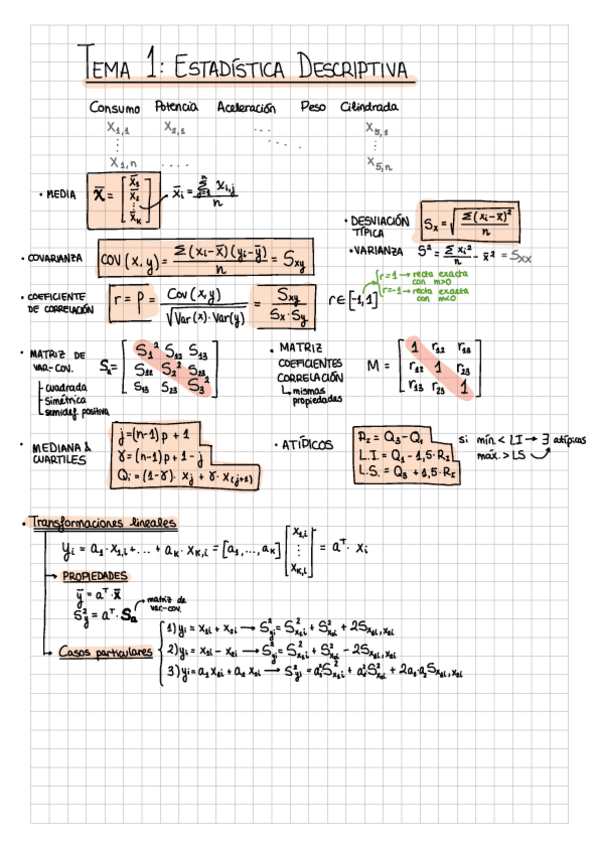 TEMA 1: ESTADÍSTICA DESCRIPTIVA
Consumo Potencia Aceleración Peso Cilindrada
X1,1 X2,1 ... X5,1
⋮ ... ⋮
X1,n .... X5,n
• MEDIA X̄ = [x̄1 x̄2 ⋮ x̄K] x̄i = Σ(j=1..n) xi,j / n
• DESVIACIÓN TÍPICA Sx = √(Σ(xi-x̄)² / n)
• VARIANZA S² = Σxi²/n - x̄² = Sxx
• COVARIANZA COV(x,y) = Σ(xi-x̄)(yi-ȳ) / n = Sxy
• COEFICIENTE DE CORRELACIÓN r = ρ = Cov(x,y) / √(Var(x)·Var(y)) = Sxy / (Sx·Sy) r∈[-1,1]
r=1 → recta exacta con m>0
r=-1 → recta exacta con m<0
• MATRIZ DE VAR-COV.
cuadrada
simétrica
semidef. positiva
S1² S12 S13
S12 S2² S23
S13 S23 S3²
• MATRIZ COEFICIENTES CORRELACIÓN
↳ mismas propiedades
M =
1 r12 r13
r12 1 r23
r13 r23 1
• MEDIANA & CUARTILES
j=(n-1)p + 1
γ=(n-1)p + 1 - j
Qi = (1-γ)· xj + γ· x(j+1)
• ATÍPICOS
RI = Q3 - Q1
L.I. = Q1 - 1,5·RI
L.S. = Q3 + 1,5·RI
si mín. < LI → ∃ atípicos
máx. > LS
• Transformaciones lineales
yi = a1·x1,i + ... + aK·xK,i = [a1,...,aK] [x1,i ⋮ xK,i] = aᵀ· xi
→ PROPIEDADES
ȳ = aᵀ·x̄
S²y = aᵀ·Sa → matriz de var-cov.
→ Casos particulares
1) yi = x1i + x2i → S²yi = S²x1i + S²x2i + 2Sx1i,x2i
2) yi = x1i - x2i → S²yi = S²x1i + S²x2i - 2Sx1i,x2i
3) yi = a1x1i + a2x2i → S²yi = a1²S²x1i + a2²S²x2i + 2a1·a2Sx1i,x2i